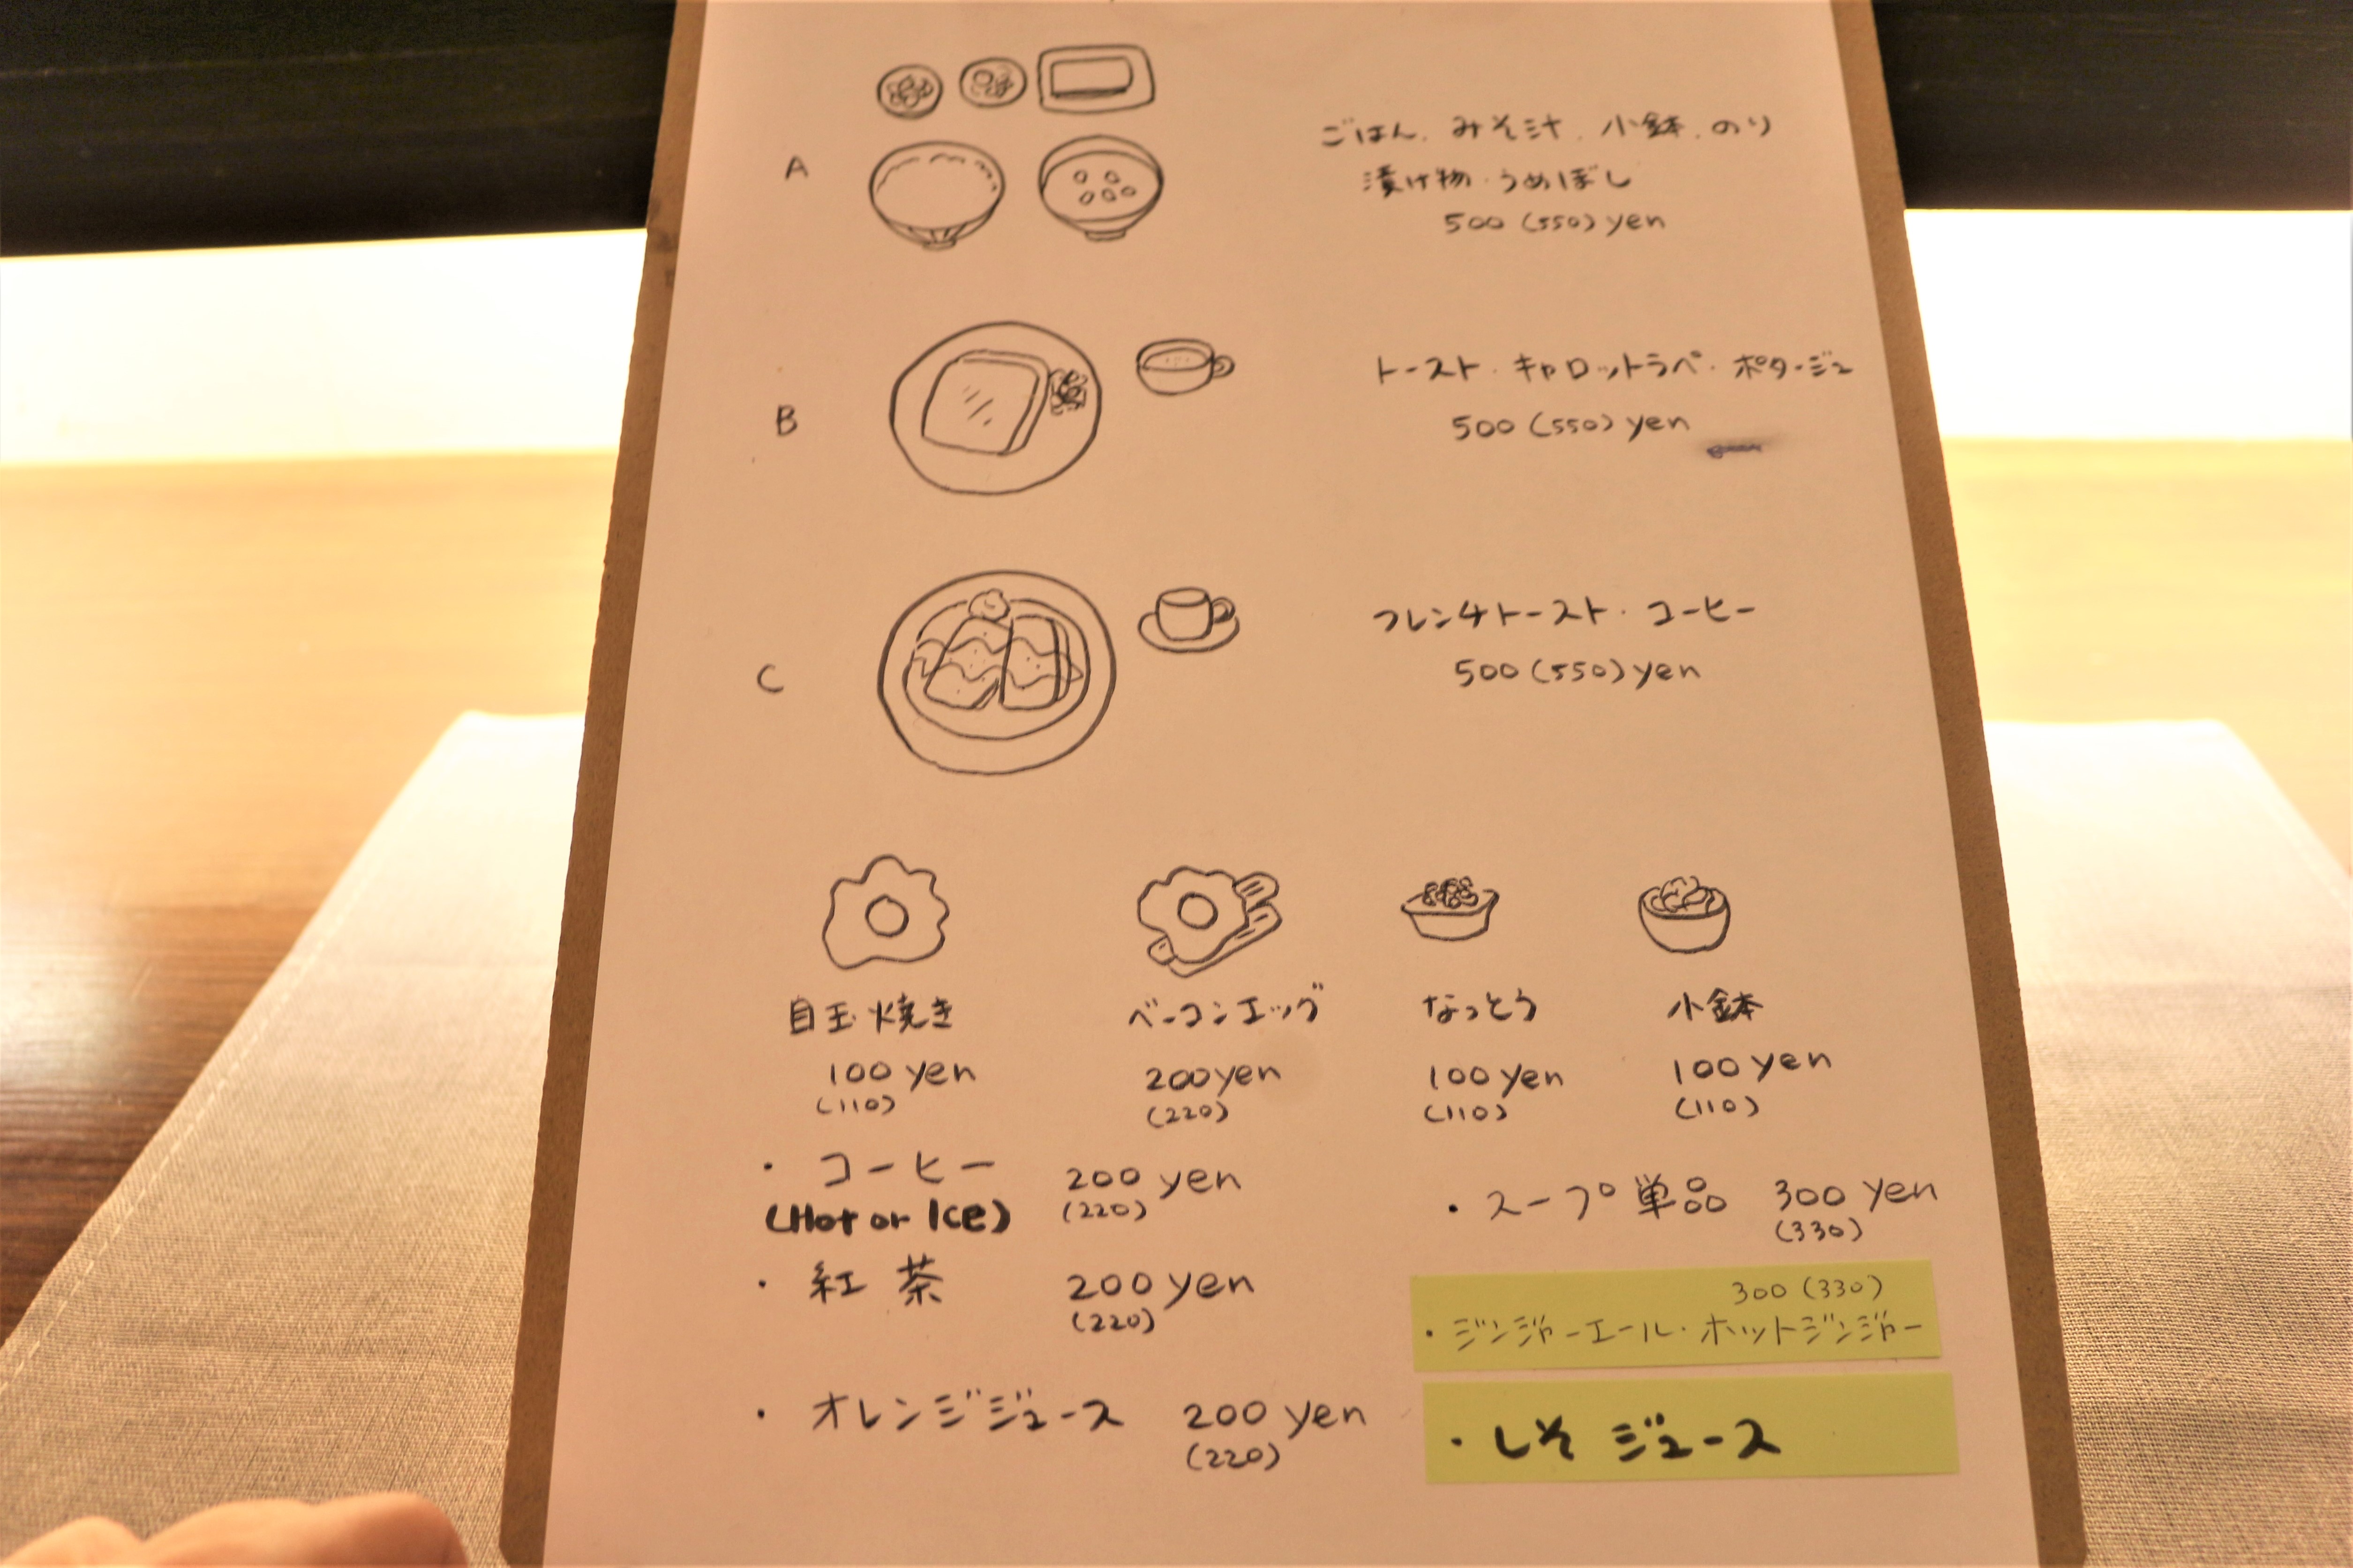 A
ごはん．みそ汁．小鉢．のり
漬け物・うめぼし
500 (550) yen
B
トースト・キャロットラペ・ポタージュ
500 (550) yen
C
フレンチトースト・コーヒー
500 (550) yen
目玉焼き ベーコンエッグ なっとう 小鉢
100 yen 200 yen 100 yen 100 yen
(110) (220) (110) (110)
・コーヒー 200 yen
(Hot or Ice) (220)
・スープ単品 300 yen
(330)
・紅茶 200 yen
(220)
300 (330)
・ジンジャーエール・ホットジンジャー
・オレンジジュース 200 yen
(220)
・しそジュース